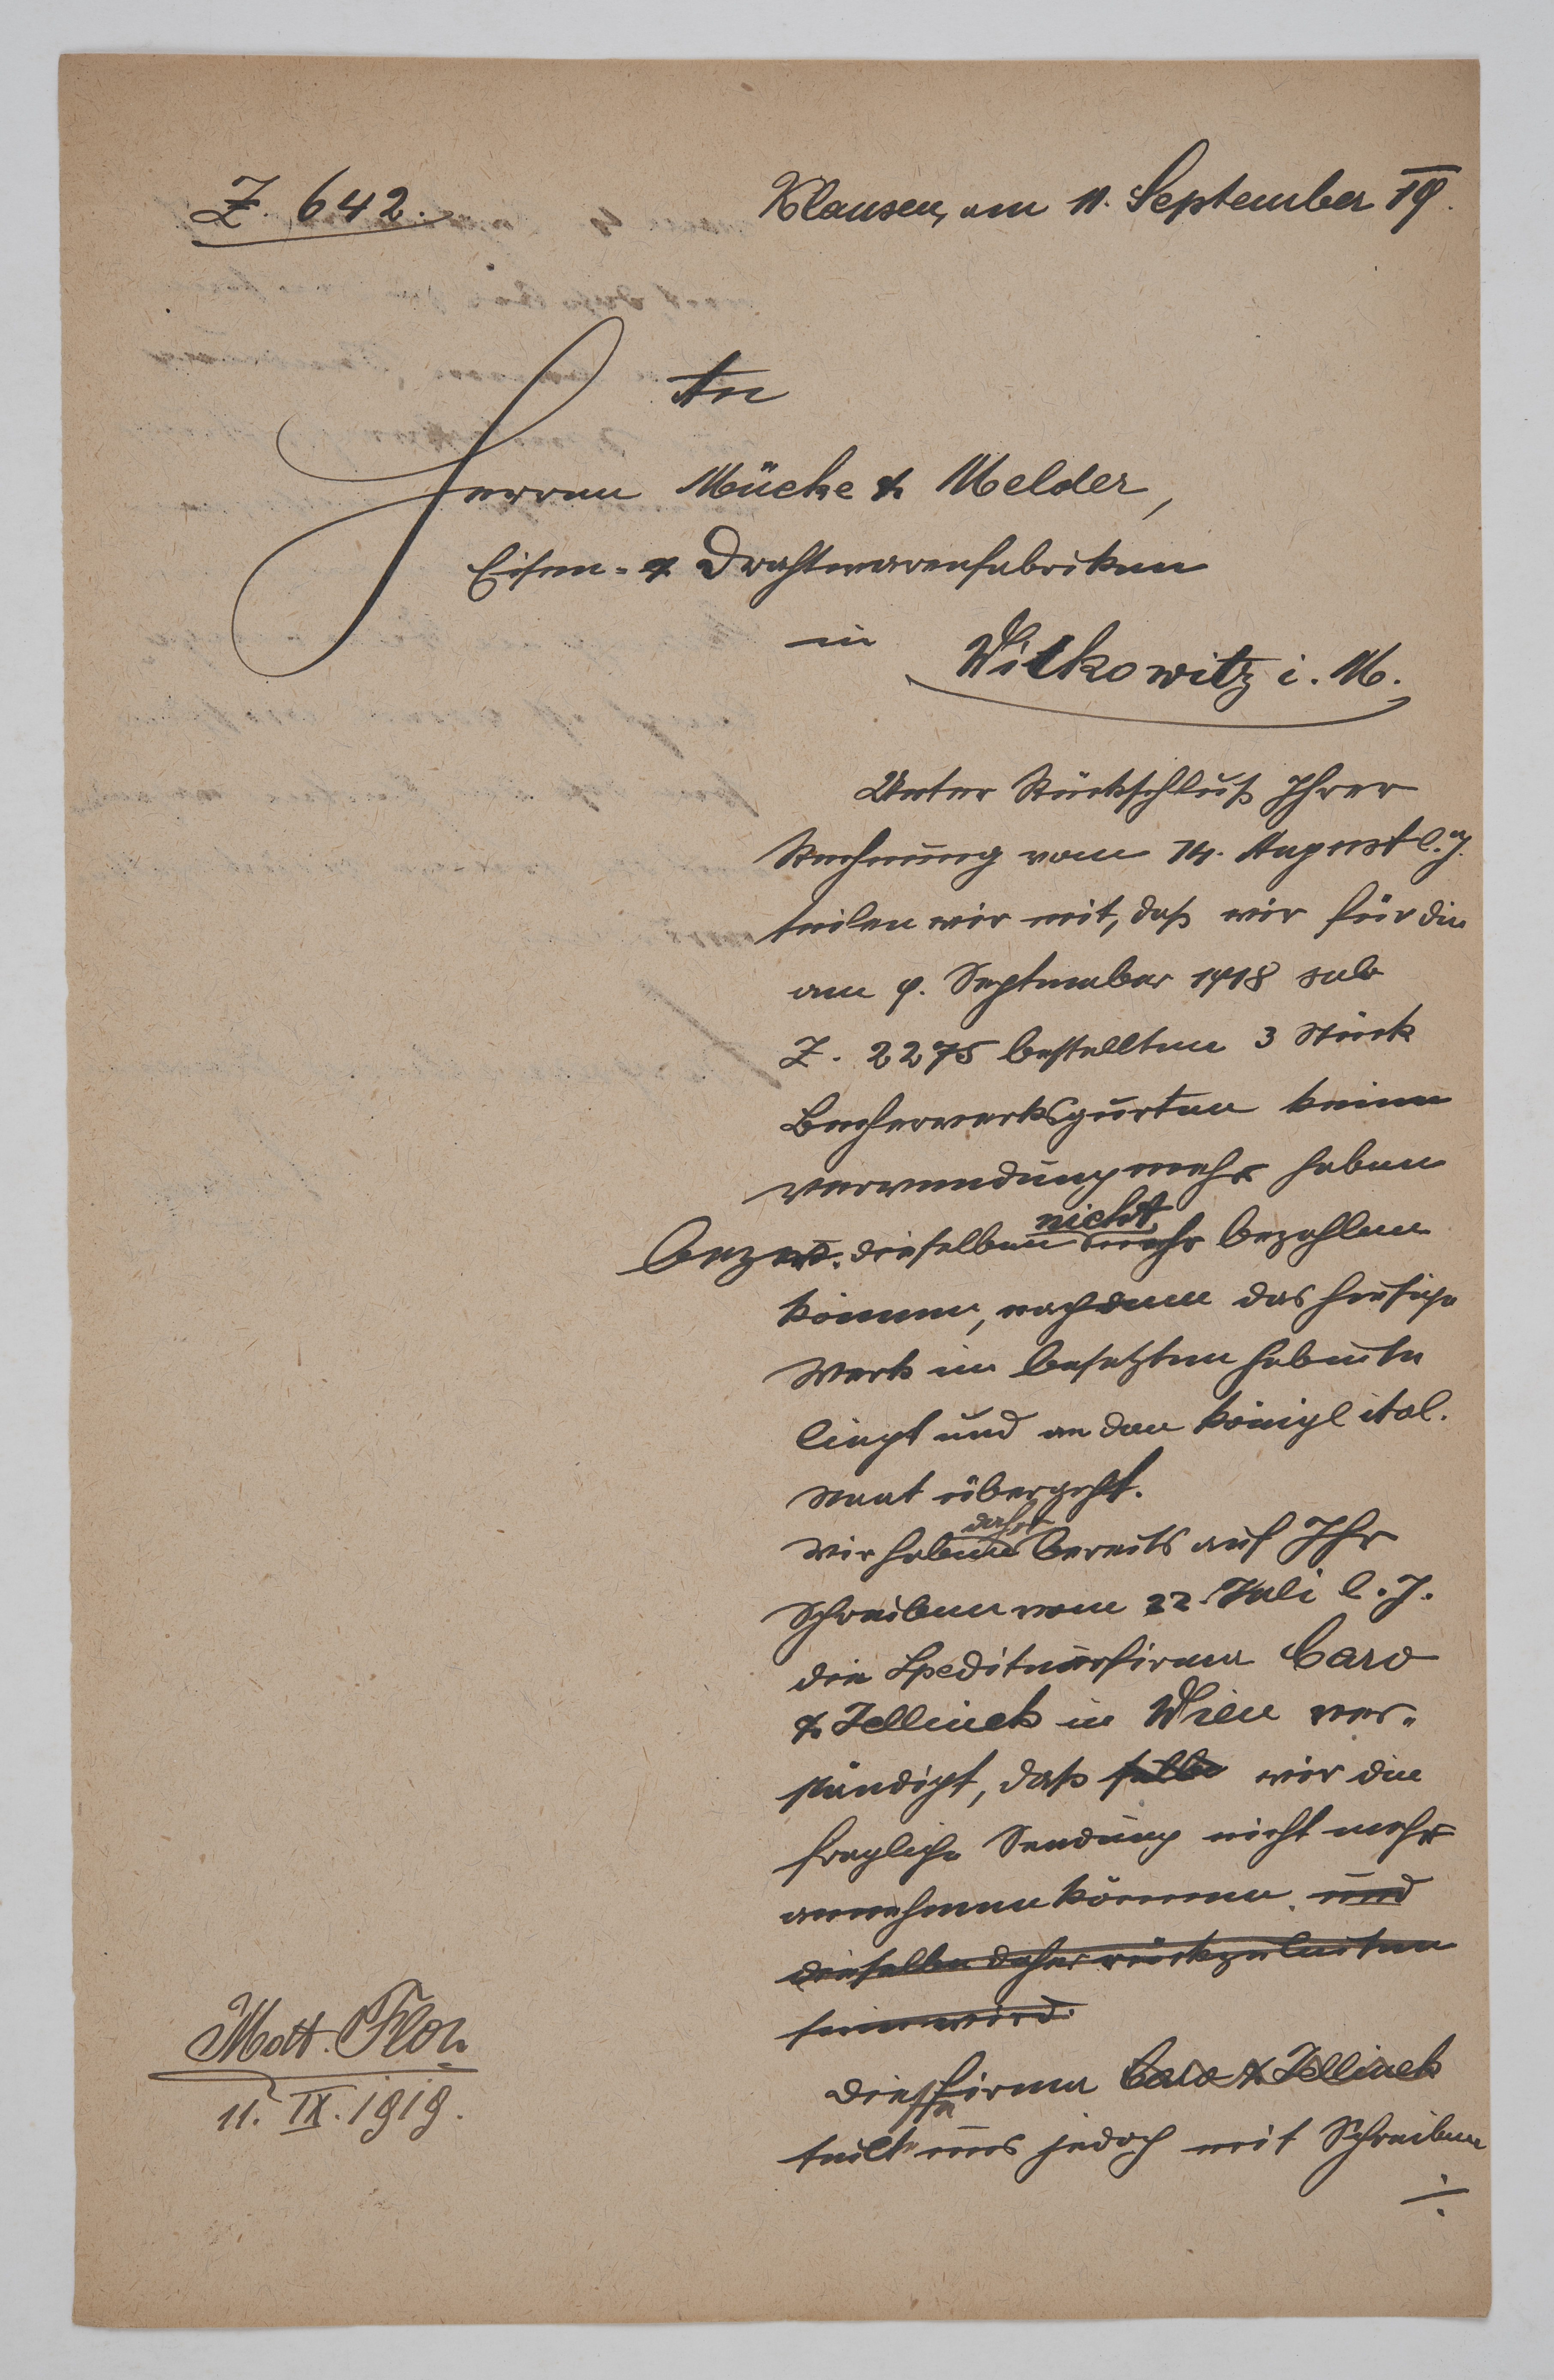 Z. 642.
Klausen, am 11. September 19.
An
Herren Mücke & Melder,
Eisen- & Drahtwarenfabriken
in Witkowitz i. M.
Unter Rückschluß Ihrer
Rechnung vom 14. August l. J.
teilen wir mit, daß wir für die
am 9. September 1918 sub
Z. 2275 bestellten 3 Stück
Becherwerksgurten keine
Verwendung mehr haben
nicht
bezw. dieselben mehr bezahlen
können, nachdem das hiesige
Werk im besetzten Gebiete
liegt und an den königl ital.
Staat übergeht.
daher
Wir haben bereits auf Ihr
Schreiben vom 22. Juli l. J.
die Spediteurfirma Caro
& Jellinek in Wien ver-
ständigt, daß selbe wir die
fragliche Sendung nicht mehr
annehmen können. und
dieselbe daher rückzuleiten
sein wird.
Diese Firma Caro & Jellinek
teilte uns jedoch mit Schreiben
./.
Matt. Flor
11. IX. 1919.